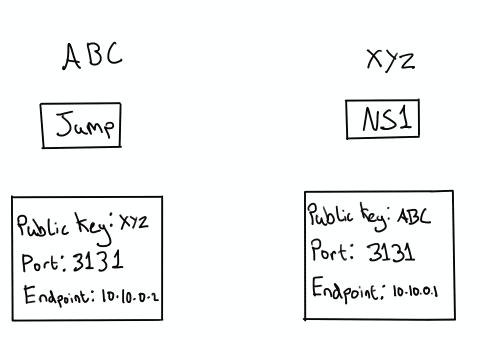 ABC
Jump
Public Key: XYZ
Port: 3131
Endpoint: 10.10.0.2
XYZ
NS1
Public Key: ABC
Port: 3131
Endpoint: 10.10.0.1